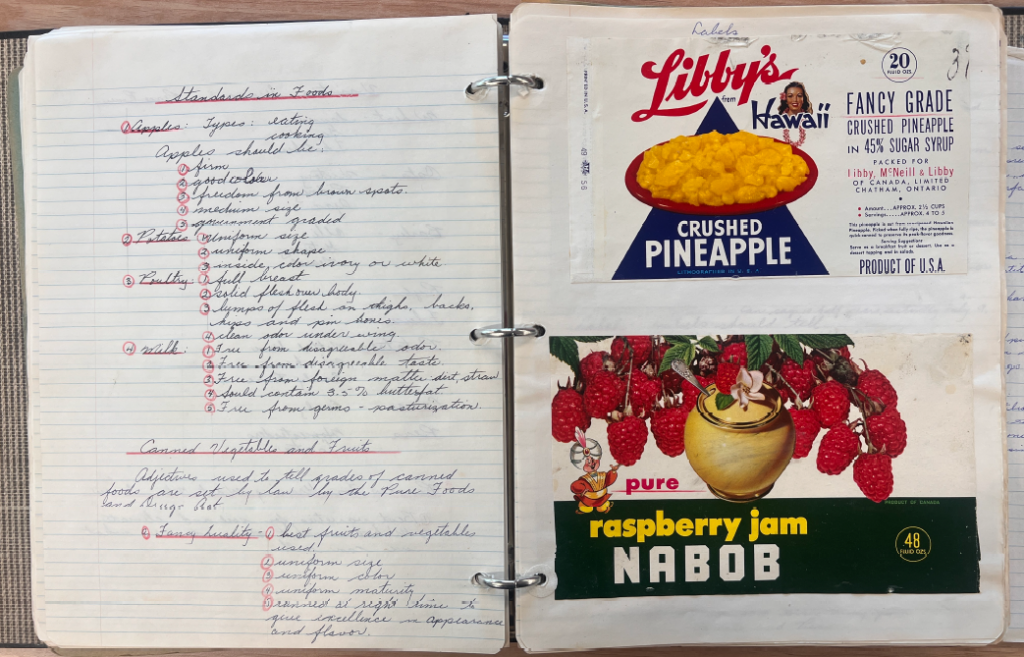 Standards in Foods
① Apples: Types: eating
cooking
Apples should be:
① firm
② good color
③ freedom from brown spots.
④ medium size
⑤ government graded
② Potatoes: ① uniform size
② uniform shape
③ inside, color ivory or white
③ Poultry: ① full breast
② solid flesh over body.
③ lumps of flesh on thighs, backs,
hips and pin bones.
④ clean odor under wing
④ Milk: ① Free from disagreeable odor.
② Free from disagreeable taste
③ Free from foreign matter: dirt, straw
④ sould contain 3.5% butterfat.
⑤ Free from germs - pasturization.
Canned Vegetables and Fruits
Adjectives used to tell grades of canned
foods are set by law by the Pure Foods
and Drugs Act
① Fancy Quality - ① best fruits and vegetables
used.
② uniform size
③ uniform color
④ uniform maturity
⑤ canned at right time to
give excellence in appearance
and flavor.
Labels
Libby's
from
Hawaii
20
FLUID OZS.
FANCY GRADE
CRUSHED PINEAPPLE
IN 45% SUGAR SYRUP
PACKED FOR
Libby, McNeill & Libby
OF CANADA, LIMITED
CHATHAM, ONTARIO
• Amount....APPROX. 2½ CUPS
• Servings.....APPROX. 4 TO 5
This pineapple is cut from Hawaiian
Pineapple. Picked when fully ripe, the pineapple is
quick-canned to preserve its peak-flavor goodness.
Serving Suggestions
Serve as a breakfast fruit or dessert. Use as a
dessert topping and in salads.
PRODUCT OF U.S.A.
CRUSHED
PINEAPPLE
LITHOGRAPHED IN U.S.
pure
PRODUCT OF CANADA
raspberry jam
NABOB
48
FLUID OZS.